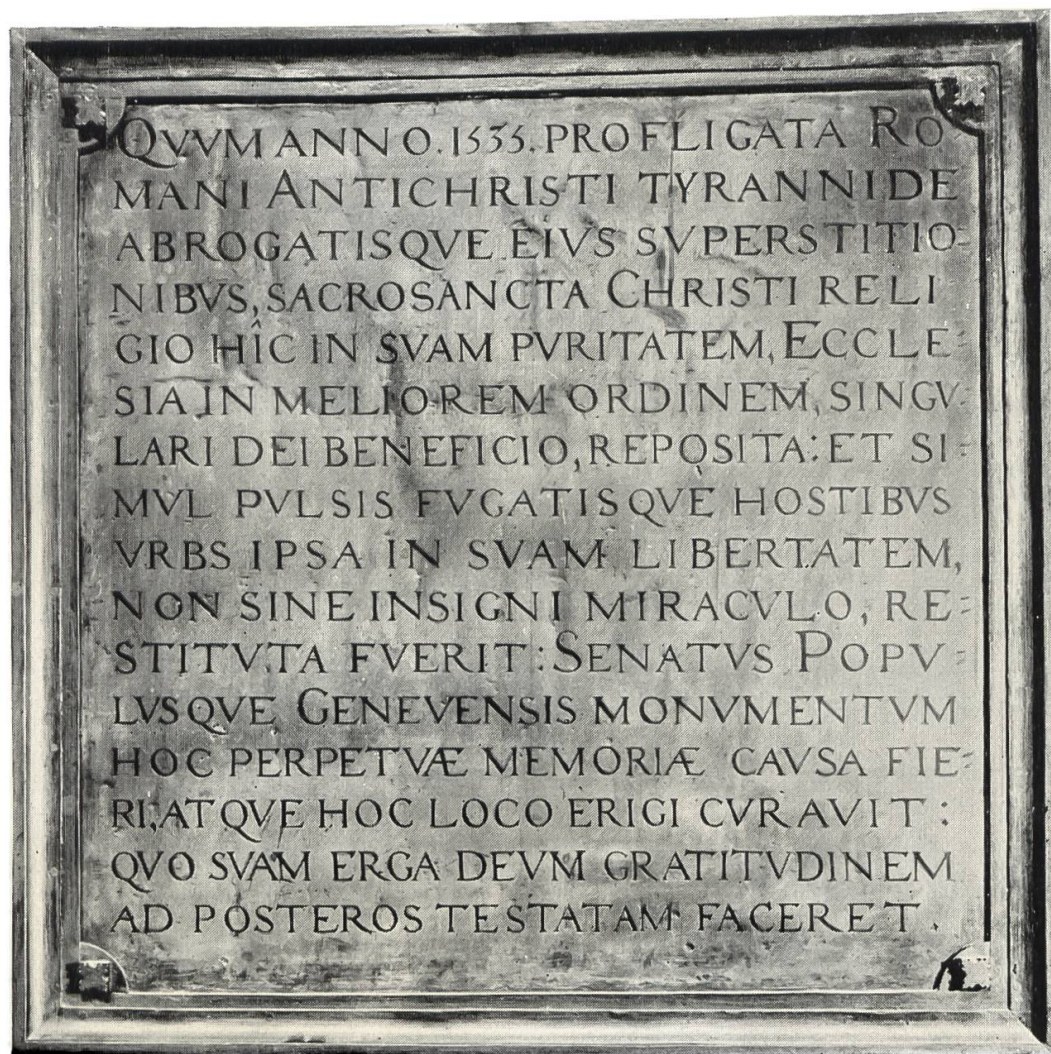 QVVM ANNO. 1535. PROFLIGATA RO
MANI ANTICHRISTI TYRANNIDE
ABROGATISQVE EIVS SVPERSTITIO=
NIBVS, SACROSANCTA CHRISTI RELI
GIO HÎC IN SVAM PVRITATEM, ECCLE=
SIA IN MELIOREM ORDINEM, SINGV=
LARI DEI BENEFICIO, REPOSITA: ET SI=
MVL PVLSIS FVGATISQVE HOSTIBVS
VRBS IPSA IN SVAM LIBERTATEM,
NON SINE INSIGNI MIRACVLO, RE=
STITVTA FVERIT: SENATVS POPV=
LVSQVE GENEVENSIS MONVMENTVM
HOC PERPETVÆ MEMORIÆ CAVSA FIE=
RI, ATQVE HOC LOCO ERIGI CVRAVIT:
QVO SVAM ERGA DEVM GRATITVDINEM
AD POSTEROS TESTATAM FACERET.